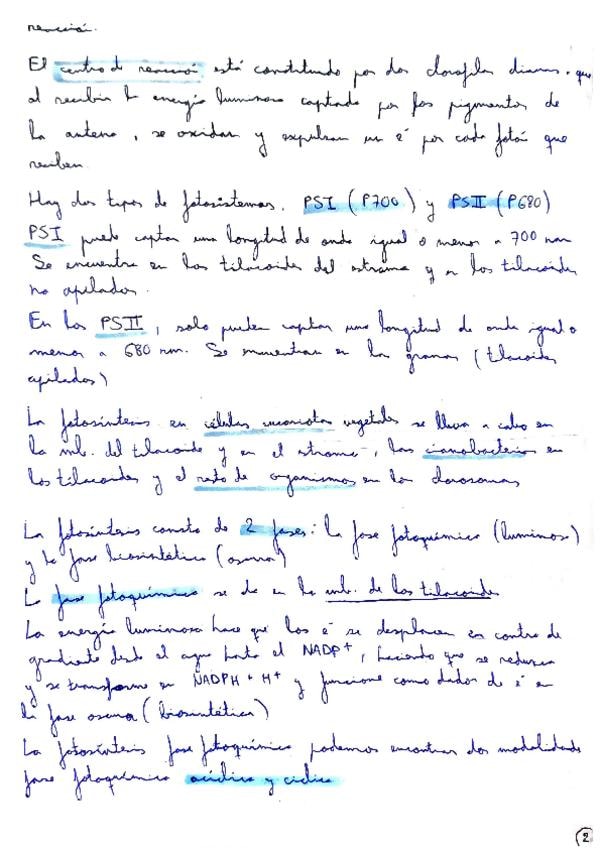 reacción.
El centro de reacción está constituido por dos clorofilas diana, que
al recibir la energía luminosa captada por los pigmentos de
la antena, se oxidan y expulsan un é por cada fotón que
reciben.
Hay dos tipos de fotosistemas. PSI (P700) y PSII (P680)
PSI puede captar una longitud de onda igual o menor a 700 nm
Se encuentra en los tilacoides del estroma y en los tilacoides
no apilados.
En los PSII, solo pueden captar una longitud de onda igual o
menor a 680 nm. Se encuentran en la grana (tilacoides
apilados)
La fotosíntesis en células eucariotas vegetales se lleva a cabo en
la mb. del tilacoide y en el estroma, las cianobacterias en
los tilacoides y el resto de organismos en los clorosomas
La fotosíntesis consta de 2 fases: la fase fotoquímica (luminosa)
y la fase biosintética (oscura)
La fase fotoquímica se da en la mb. de los tilacoides
La energía luminosa hace que los é se desplacen en contra de
gradiente desde el agua hasta el NADP+, haciendo que se reduzca
y se transforme en NADPH + H+ y funcione como dador de é en
la fase oscura (biosintética)
La fotosíntesis fase fotoquímica podemos encontrar dos modalidades
fase fotoquímica acíclica y cíclica
2